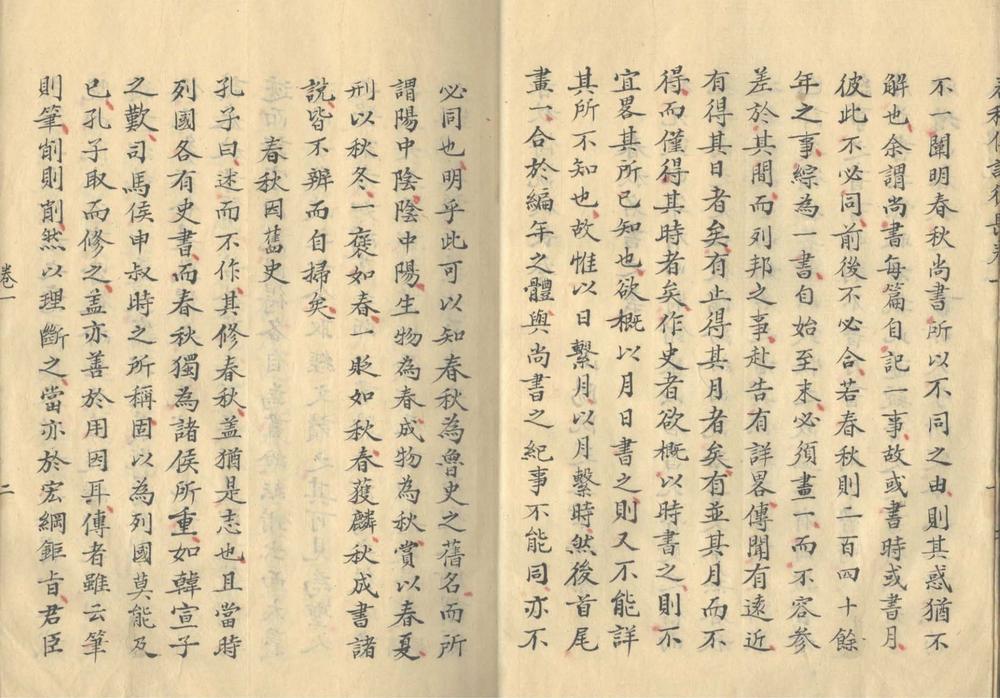 不一闡明春秋尚書所以不同之由則其惑猶不
解也余謂尚書每篇自記一事故或書時或書月
彼此不必同前後不必合若春秋則二百四十餘
年之事綜為一書自始至末必須畫一而不容参
差於其間而列邦之事赴告有詳畧傳聞有遠近
有得其日者矣有止得其月者矣有並其月而不
得而僅得其時者矣作史者欲概以時書之則不
宜畧其所已知也欲概以月日書之則又不能詳
其所不知也故惟以日繫月以月繫時然後首尾
畫一合於編年之體與尚書之紀事不能同亦不
必同也明乎此可以知春秋為魯史之舊名而所
謂陽中陰陰中陽生物為春成物為秋賞以春夏
刑以秋冬一褒如春一貶如秋春獲麟秋成書諸
說皆不辨而自掃矣
春秋因舊史
孔子曰述而不作其修春秋盖猶是志也且當時
列國各有史書而春秋獨為諸侯所重如韓宣子
之歎司馬侯申叔時之所稱固以為列國莫能及
已孔子取而修之盖亦善於用因耳傳者雖云筆
則筆削則削然以理斷之當亦於宏綱鉅旨君臣
卷一
二